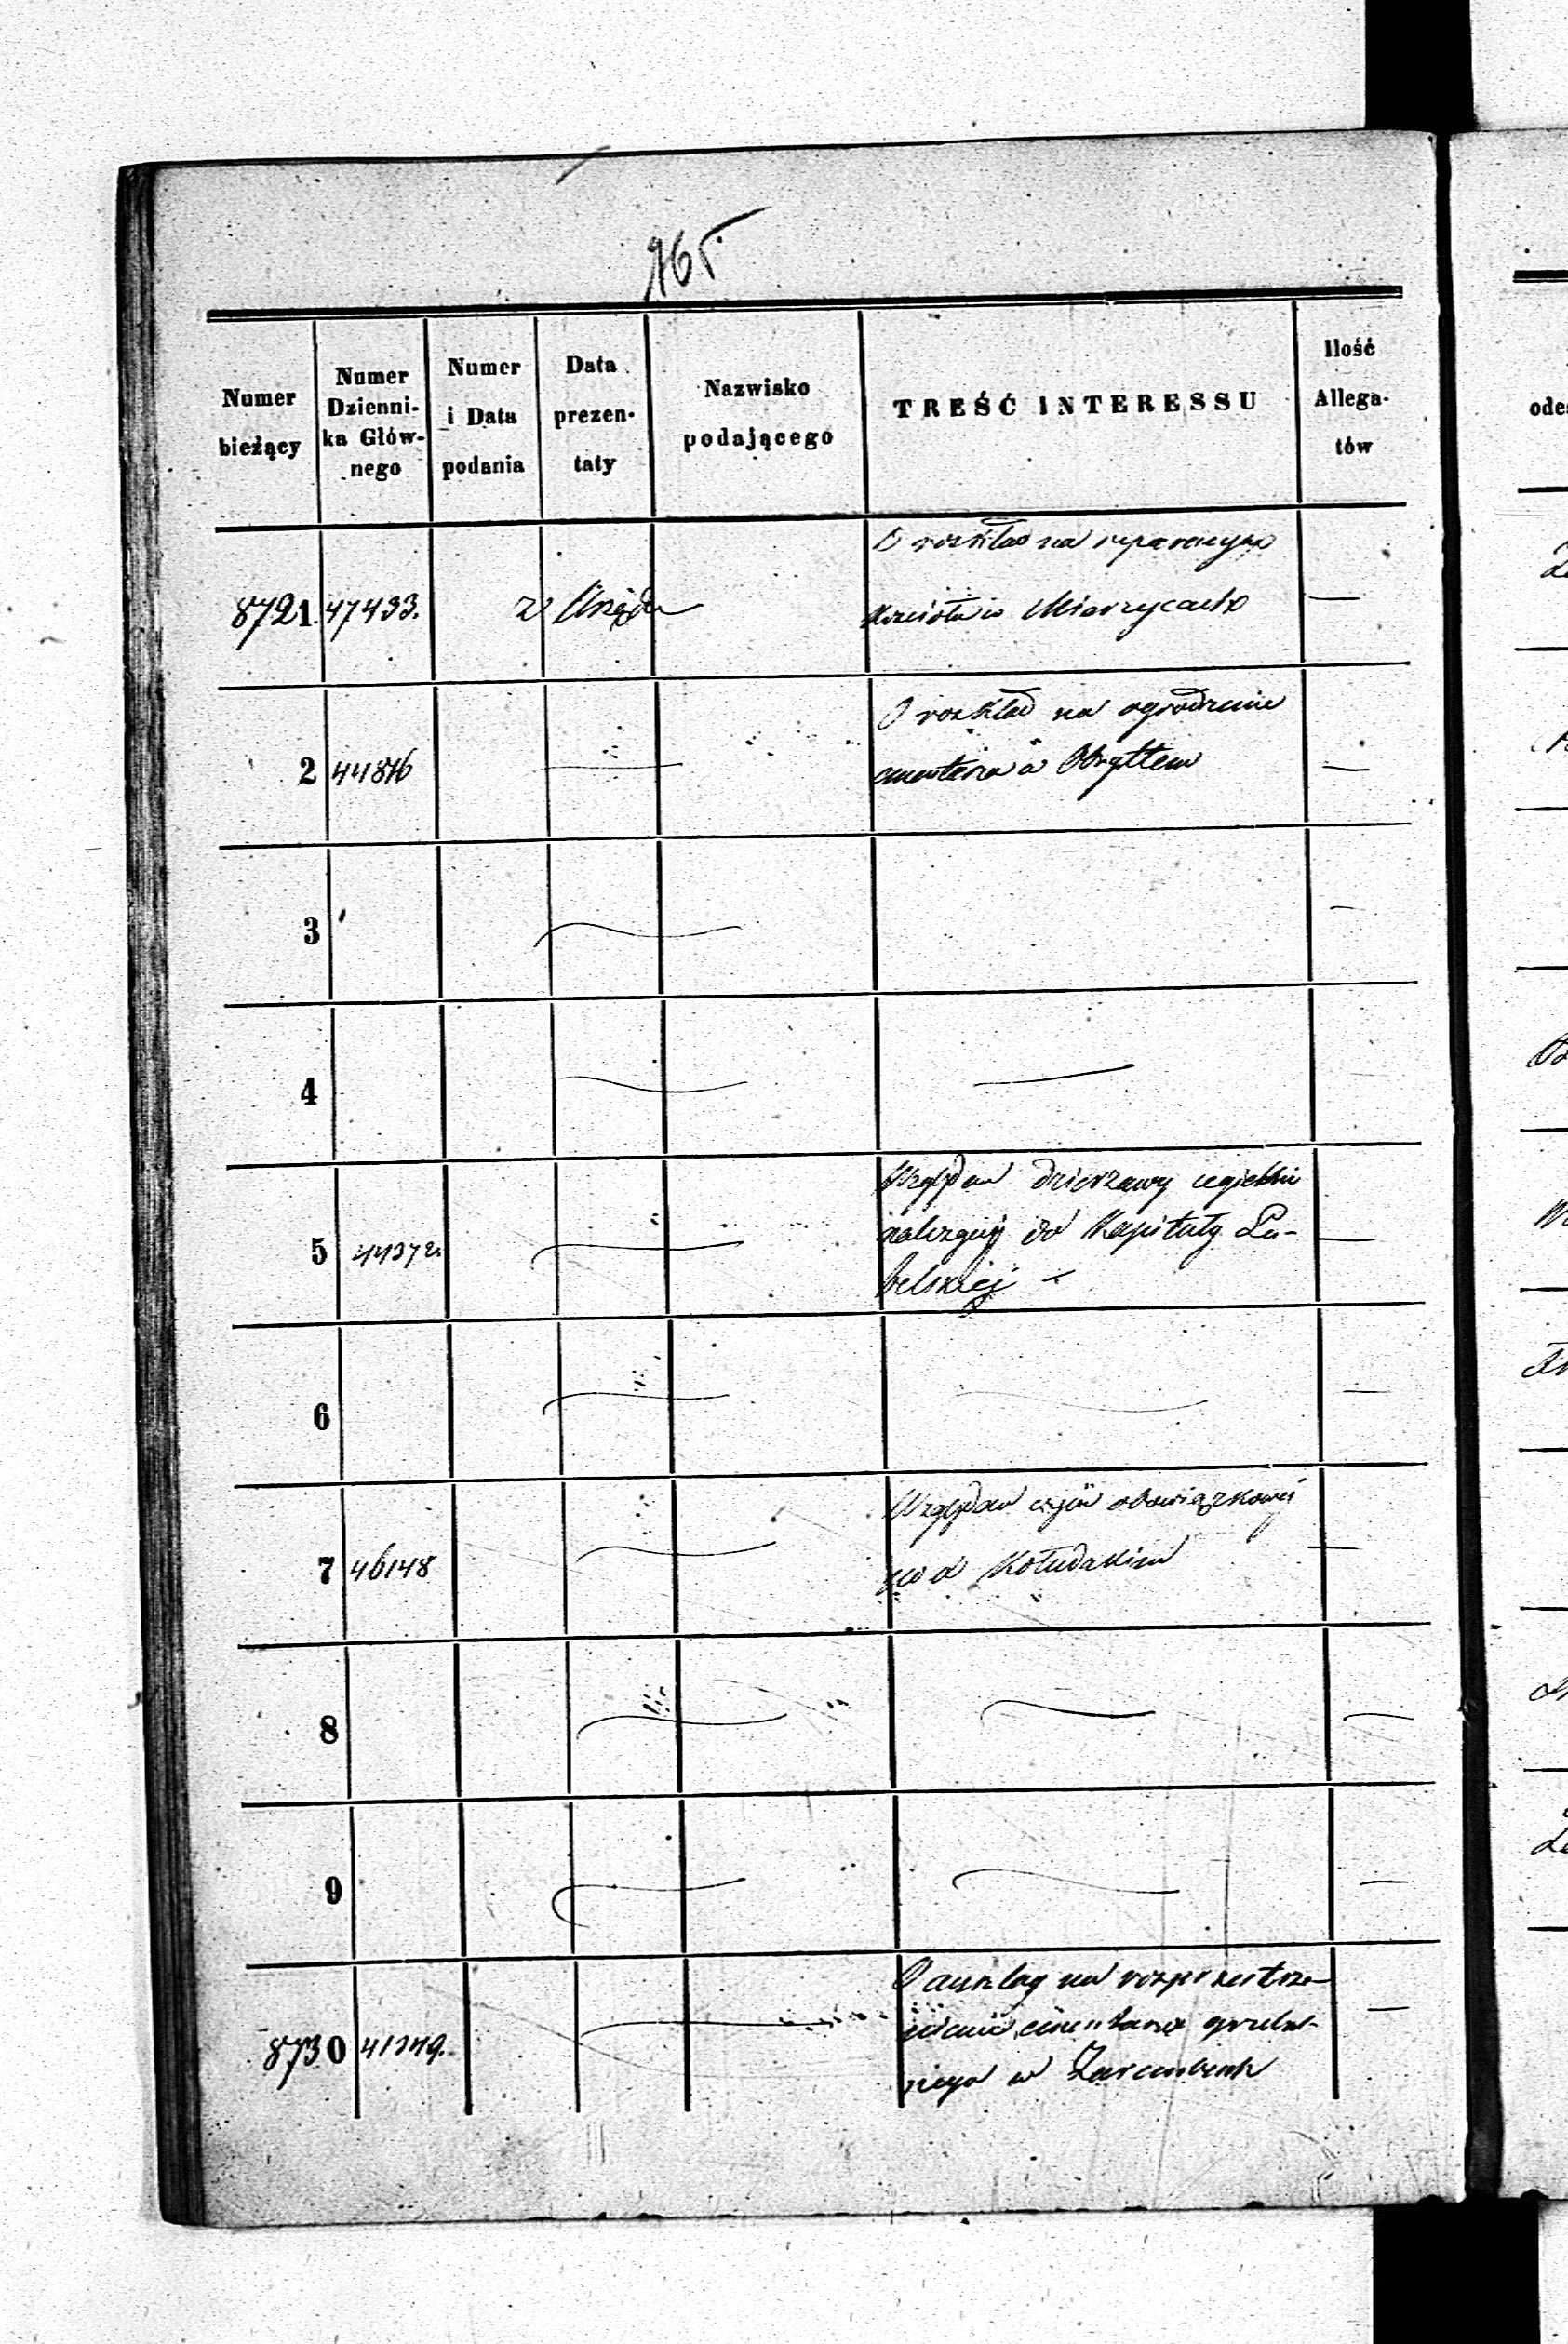 165
Numer bieżący
Numer Dzienni-
ka Głów-
nego
Numer
i Data
podania
Data
prezen-
taty
Nazwisko
podającego
TREŚĆ INTERESSU
Ilość
Allega-
tów
8721 47433. z Urzędu O rozkład na reparacyą —
Kościoła w
2 44876 — O rozkład na ogrodzenie —
cmentarza w Obrytem
3 — —
4 — —
5 44372. — Względem dzierżawy cegielni
należącej do Kapituły Lu- —
belskiej —
6 — — —
7 46148 — Względem obowiązkowej
—
8 — — —
9 — — —
8730 41349. — O na rozprzestrze- —
nienie cmentarza grzebal-
nego w Zarembach